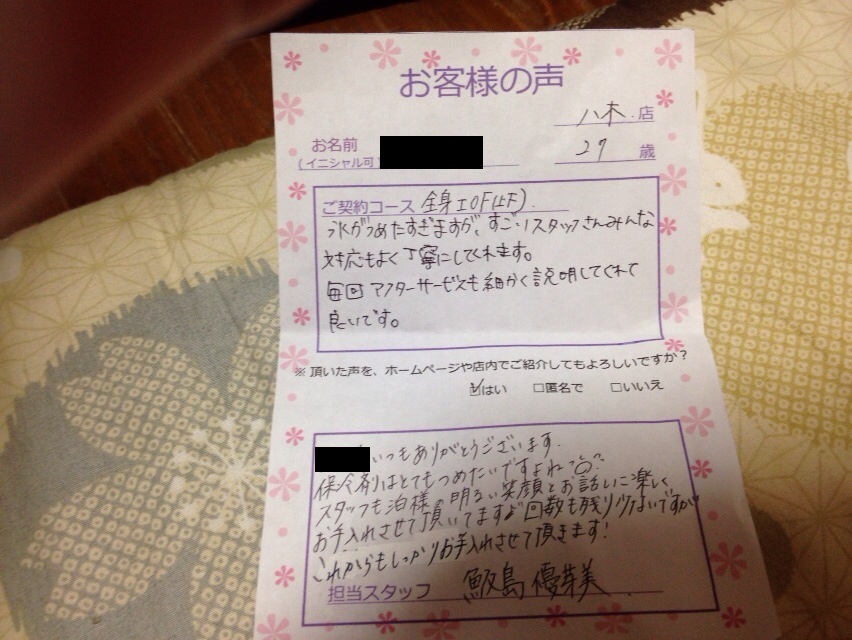 お客様の声
八木 店
お名前
(イニシャル可)
27 歳
ご契約コース 全身
氷がつめたすぎますが、すごいスタッフさんみんな
対応もよく丁寧にしてくれます。
毎回アフターサービスも細かく説明してくれて
良いです。
※ 頂いた声を、ホームページや店内でご紹介してもよろしいですか?
☑はい □匿名で □いいえ
いつもありがとうございます。
保冷剤はとてもつめたいですよね
スタッフも泊様の明るい笑顔とお話しに楽しく
お手入れさせて頂いてます♪回数も残り少ないですが
これからもしっかりお手入れさせて頂きます!
担当スタッフ 飯島 優芽美